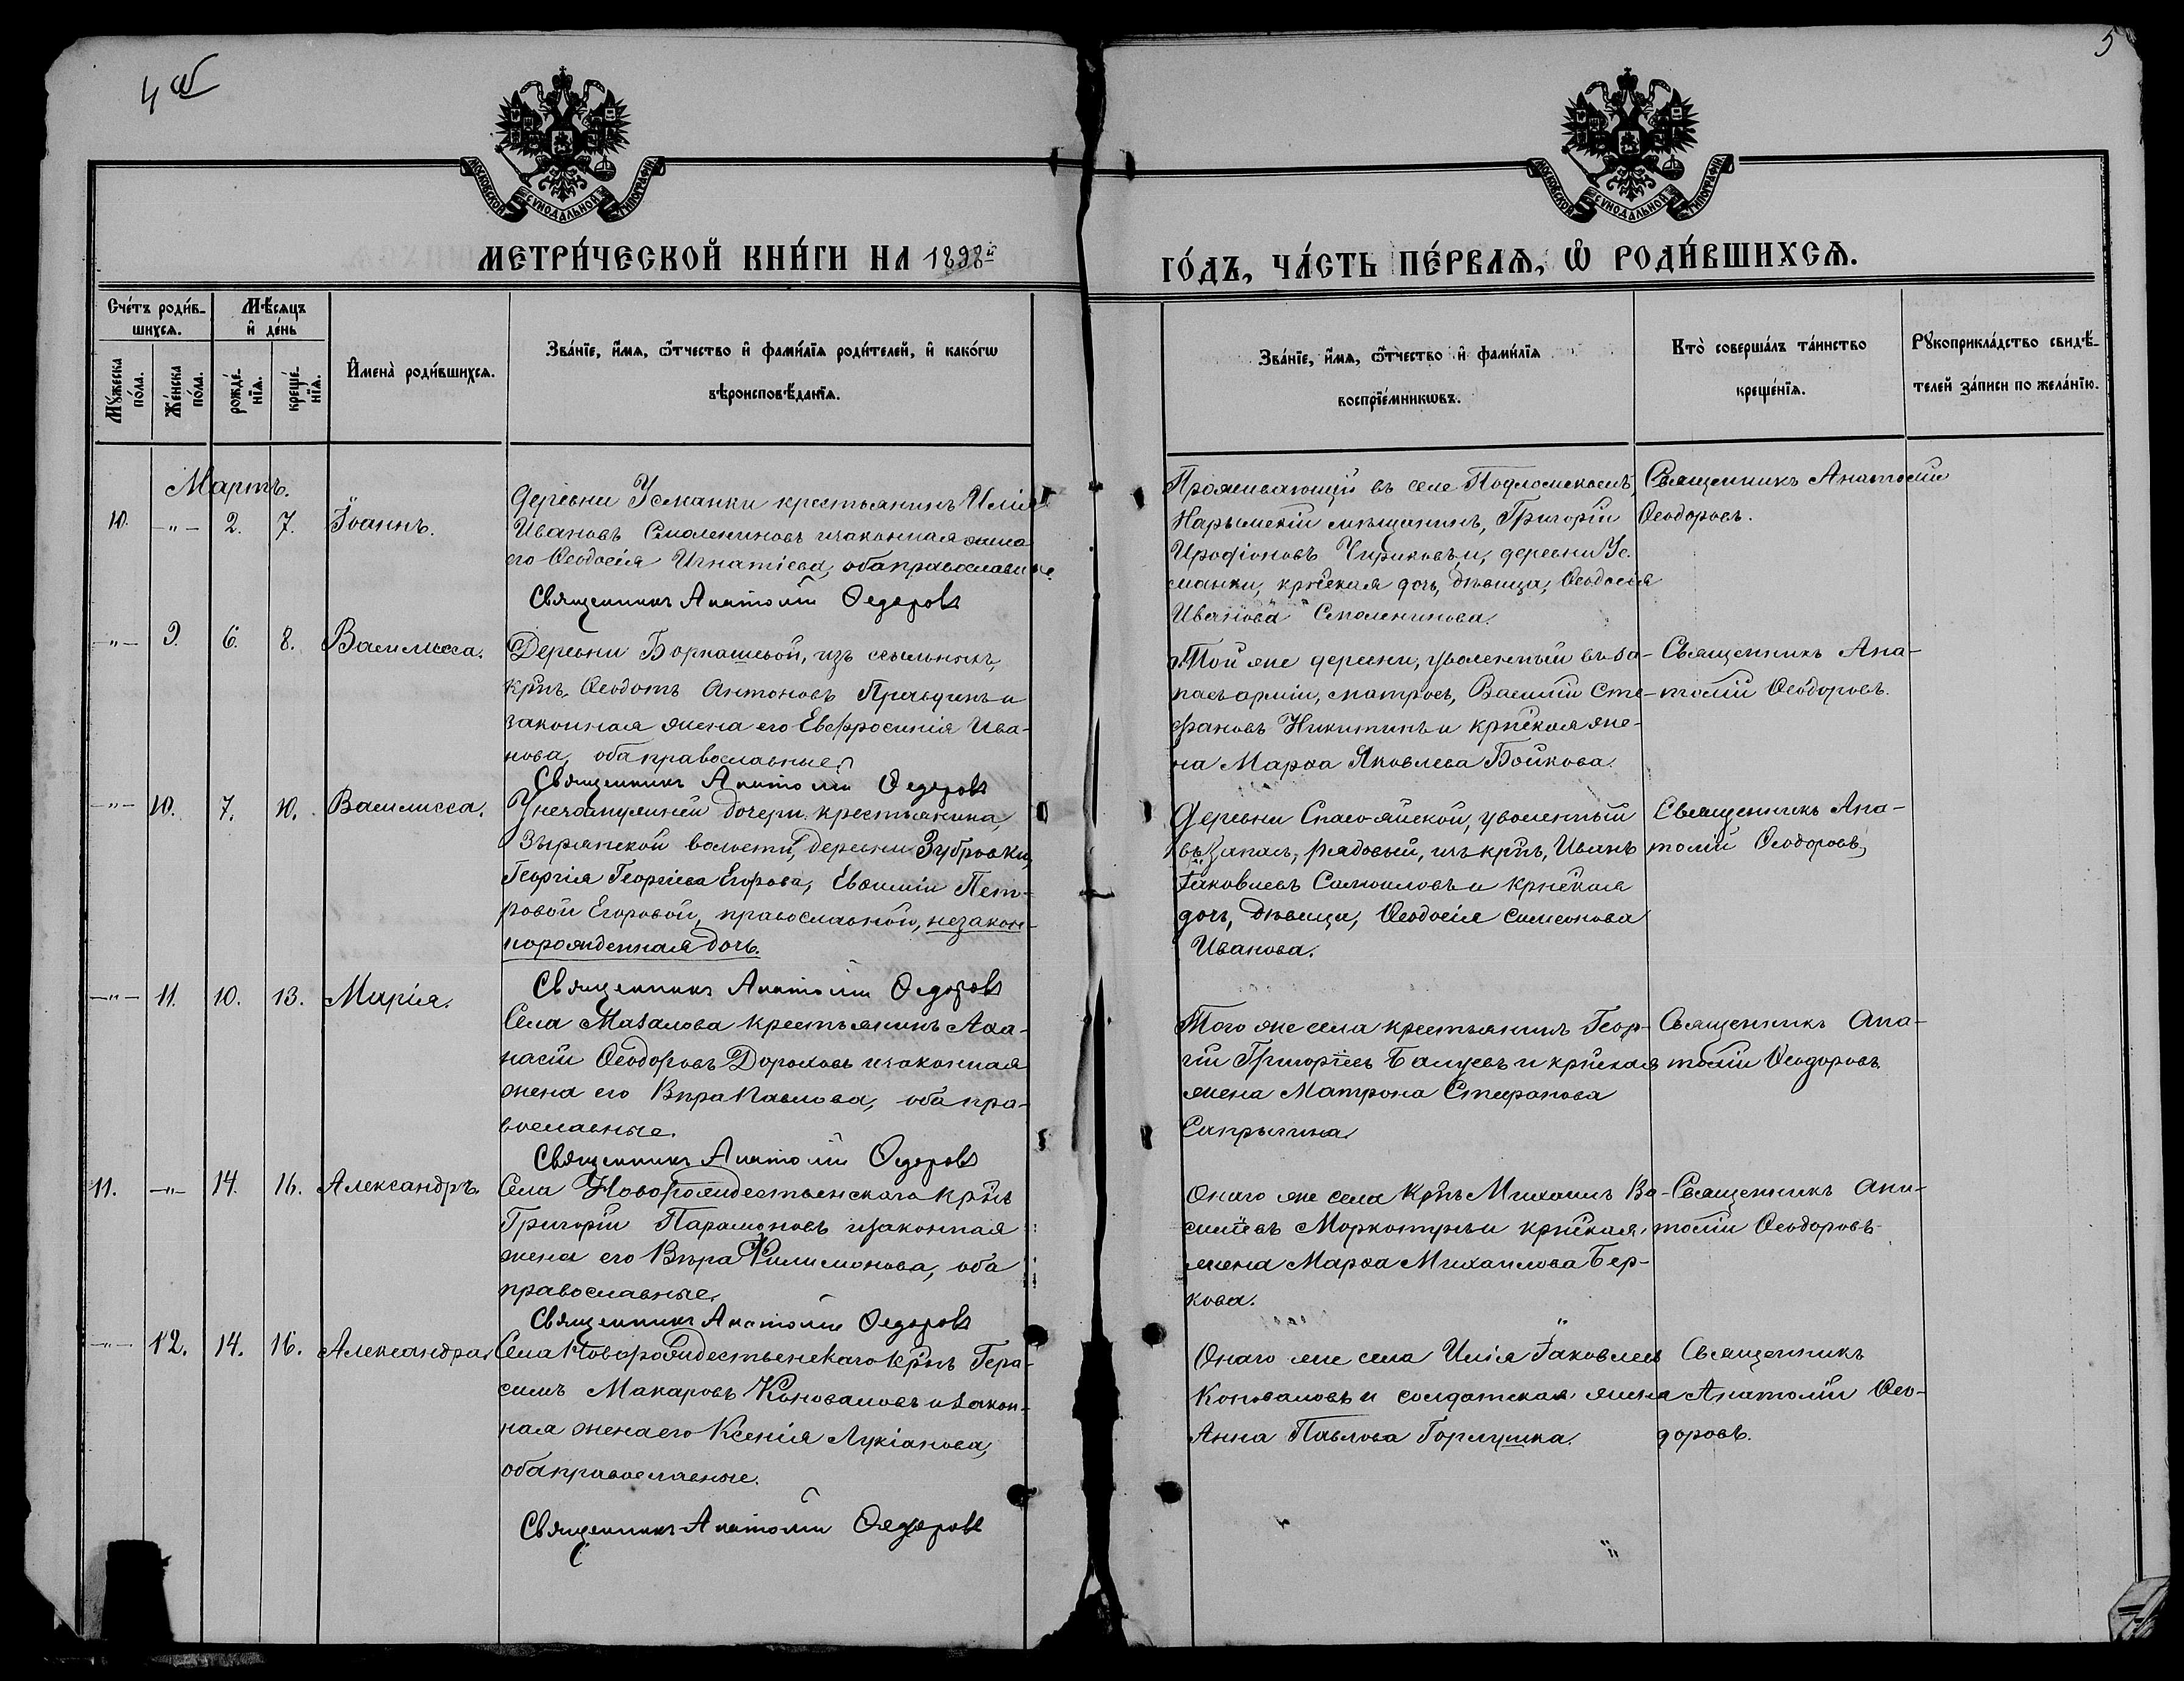 4 об
5
МОСКОВСКОЙ СѴНОДАЛЬНОЙ ТИПОГРАФІИ
МОСКОВСКОЙ СѴНОДАЛЬНОЙ ТИПОГРАФІИ
МЕТРИ́ЧЕСКОЙ КНИ́ГИ НА 1898й
ГО́ДЪ, ЧА́СТЬ ПЕ́РВАѦ, Ѡ҆ РОДИ́ВШИХСѦ.
Сче́тъ роди́в-
шихсѧ.
Мѣ́сѧцъ
и҆ де́нь
Мꙋ́жеска по́ла.
Же́нска по́ла.
рожде́нїѧ.
креще́нїѧ.
И҆мена̀ роди́вшихсѧ.
Зва́нїе, и҆́мѧ, ѻ҆́тчество и҆ фами́лїѧ роди́телей, и҆ како́гѡ
вѣроисповѣ́данїѧ.
Зва́нїе, и҆́мѧ, ѻ҆́тчество и҆ фами́лїѧ
воспрїе́мникѡвъ.
Кто̀ соверша́лъ та́инство
креще́нїѧ.
Рꙋкоприкла́дство свидѣ́-
телей за́писи по жела́нїю.
Мартъ.
10. -"- 2. 7. Іоаннъ.
Деревни Усманки крестьянинъ Илія
Ивановъ Смоленниковъ и законная жена
его Ѳеодосія Игнатіева, оба православные.
Священникъ Анатолій Ѳедоровъ
Проживающій въ селе
Нарымскій мѣщанинъ, Григорій
Иродіоновъ Чириковъ и, деревни Ус-
манки, крестская дочь, дѣвица, Ѳеодосія
Иванова Смоленникова.
Священникъ Анатолій
Ѳеодоровъ.
-"- 9. 6. 8. Василисса.
Деревни Боркашевой, изъ ссыльныхъ,
крнъ. Ѳеодотъ Антоновъ и
законная жена его Евфросинія Ива-
нова, оба православные.
Священникъ Анатолій Ѳедоровъ
Той же деревни, уволенный въ за-
пасъ арміи, матросъ, Василій Сте-
фановъ Никитинъ и крнская же-
на Марѳа Яковлева Бойкова.
Священникъ Ана-
толій Ѳеодоровъ.
-"- 10. 7. 10. Василисса.
У незамужней дочери крестьянина,
Зырянской волости, деревни Зубровки,
Георгія Георгіева Егорова, Евѳиміи Пет-
ровой Егоровой, православной, незакон-
норожденная дочь.
Священникъ Анатолій Ѳедоровъ
Деревни Спасо-яйской, уволенный
въ запасъ, рядовый, изъ крнъ, Иванъ
Іаковлевъ Самойловъ и крнская
дочь, дѣвица, Ѳеодосія Симеонова
Иванова.
Священникъ Ана-
толій Ѳеодоровъ,
-"- 11. 10. 13. Марія.
Села Мазалова крестьянинъ Аѳа-
насій Ѳеодоровъ Дороховъ и законная
жена его Вѣра Павлова, оба пра-
вославные.
Священникъ Анатолій Ѳедоровъ
Того же села крестьянинъ Геор-
гій Григорьевъ Балуевъ и крнская
жена Матрона Стефанова
Сапрыгина.
Священникъ Ана-
толій Ѳеодоровъ.
11. -"- 14. 16. Александръ.
Села Новорождественскаго крнъ
Григорій Парамоновъ и законная
жена его Вѣра Филимонова, оба
православные.
Священникъ Анатолій Ѳедоровъ
Онаго же села крнъ Михаилъ Ва-
сильевъ и крнская
жена Марѳа Михаилова Бер-
кова.
Священникъ Ана-
толій Ѳеодоровъ
-"- 12. 14. 16. Александра.
Села Новорождественскаго крнъ Гера-
симъ Макаровъ Коноваловъ и закон-
ная жена его Ксенія Лукіанова,
оба православные.
Священникъ Анатолій Ѳедоровъ
Онаго же села Илія Іаковлевъ
Коноваловъ и солдатская жена
Анна Павлова Горлушка.
Священникъ
Анатолій Ѳео-
доровъ.